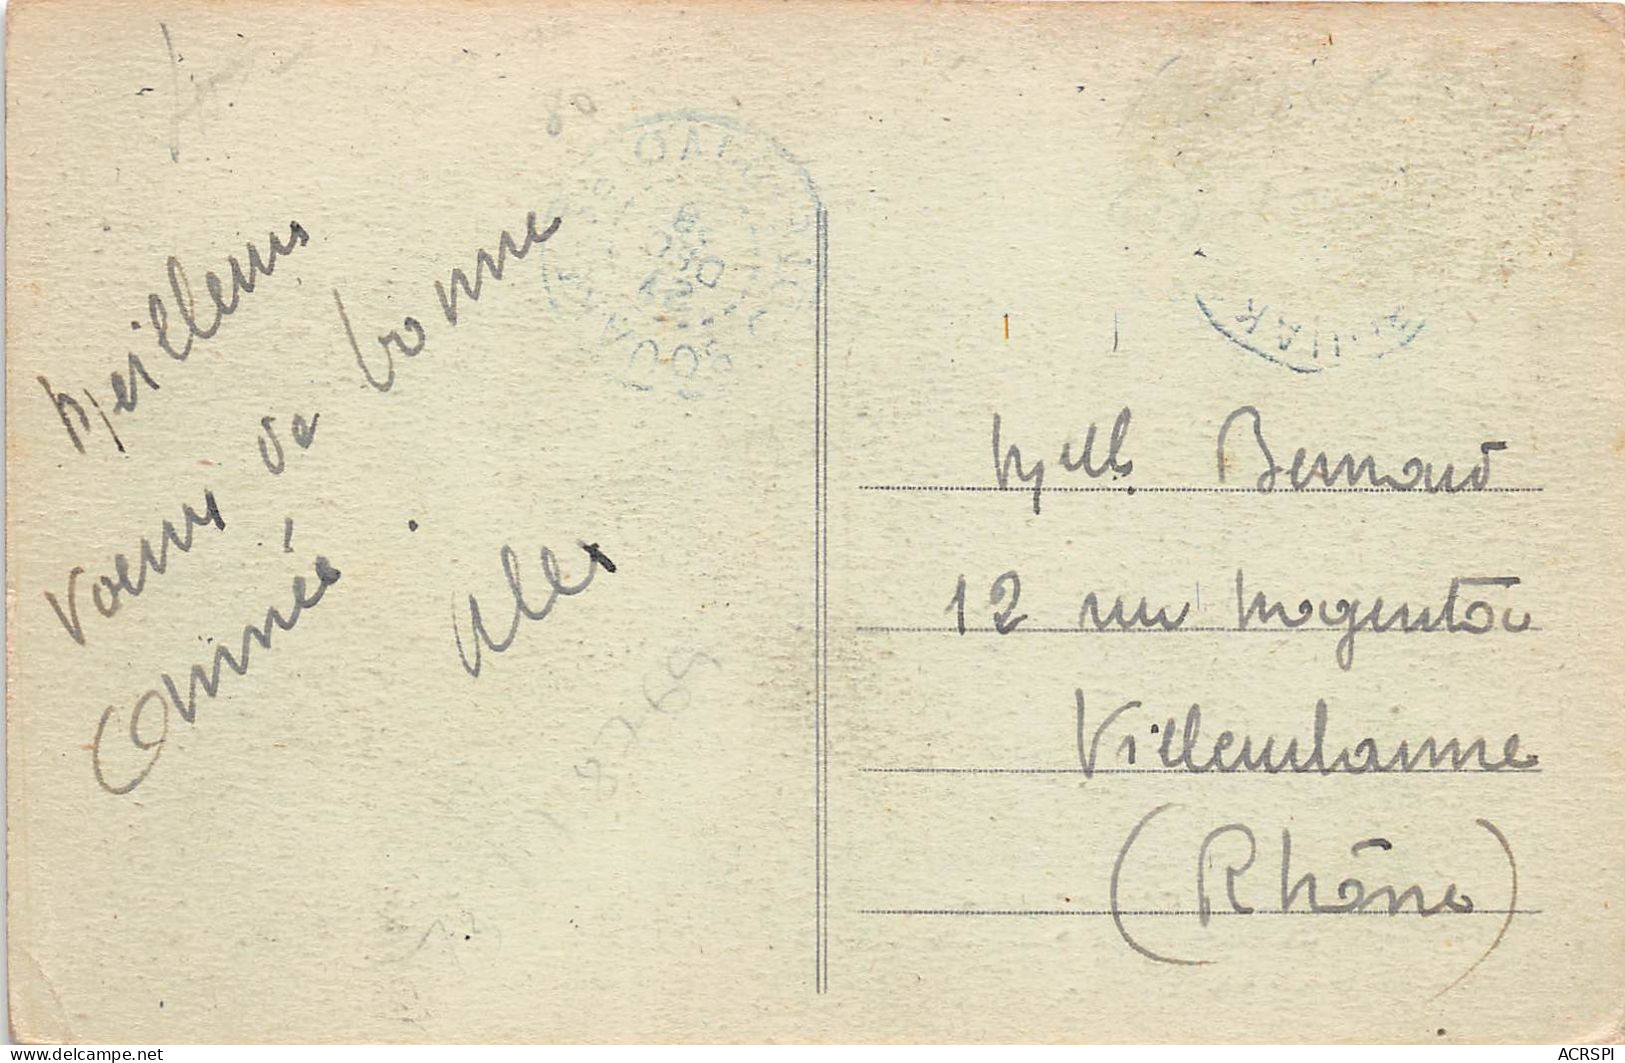 Meilleurs
voeux de bonne
année.
Alex
80
8
DEC
8769
Melle Bernard
12 rue Magenta
Villeurbanne
(Rhône)
delcampe.net
ACRSPI